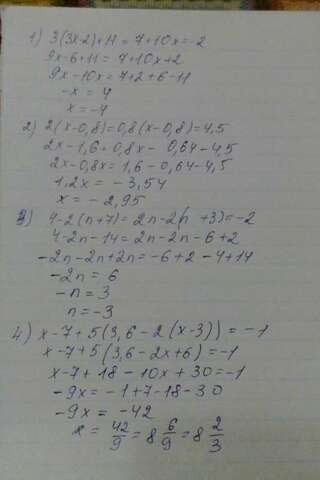 1) 3(3x-2)+11 = 7+10x=-2
9x-6+11 = 7+10x+2
9x-10x = 7+2+6-11
-x = 4
x = -4
2) 2(x-0,8)=0,8(x-0,8)=4,5
2x-1,6=0,8x-0,64-4,5
2x-0,8x=1,6-0,64-4,5
1,2x = -3,54
x = -2,95
3) 4-2(n+7)=2n-2(n+3)=-2
4-2n-14=2n-2n-6+2
-2n-2n+2n=-6+2-4+14
-2n = 6
-n = 3
n = -3
4) x-7+5(3,6-2(x-3)) = -1
x-7+5(3,6-2x+6)=-1
x-7+18-10x+30=-1
-9x=-1+7-18-30
-9x = -42
x = 42/9 = 8 6/9 = 8 2/3